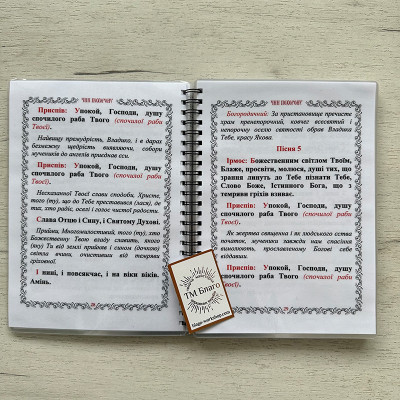 ЧИН ПОХОРОНУ
Приспів: Упокой, Господи, душу
спочилого раба Твого (спочилої раби
Твоєї).
Найвищу премудрість, Владико, і в дарах
безмежну щедрість виявляючи, собори
мучеників до ангелів приєднав єси.
Приспів: Упокой, Господи, душу
спочилого раба Твого (спочилої раби
Твоєї).
Несказанної Твоєї слави сподоби, Христе,
того (ту), що до Тебе преставився (лася), де
тих, хто радіє, оселі і голос чистої радості.
Слава Отцю і Сину, і Святому Духові.
Прийми, Многомилостивий, того (ту), хто
Божественну Твою владу славить, якого
(ту) Ти від землі прийняв і сином (дочкою)
світла вчини, очистивши від темряви
гріховної.
І нині, і повсякчас, і на віки віків.
Амінь.
ЧИН ПОХОРОНУ
Богородичний: За пристановище пречисте
храм пренепорочний, ковчег всесвятий і
непорочну оселю святості обрав Владика
Тебе, красу Якова.
Пісня 5
Ірмос: Божественним світлом Твоїм,
Блаже, просвіти, молюся, душі тих, що
зрання линуть до Тебе пізнати Тебе,
Слово Боже, Істинного Бога, що з
темряви гріхів взиває.
Приспів: Упокой, Господи, душу
спочилого раба Твого (спочилої раби
Твоєї).
Як жертва священна і як людського єства
початок, мученики завжди нам спасіння
вимолюють, прославленому Богові себе
віддавши.
Приспів: Упокой, Господи, душу
спочилого раба Твого (спочилої раби
Твоєї).
ТМ Благо
blago-workshop.com